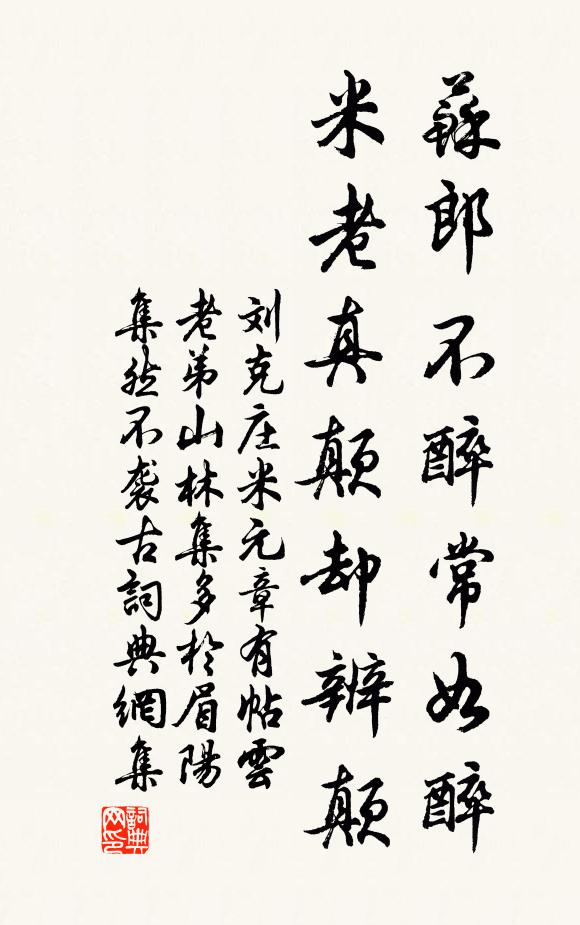 蘇郎不醉常如醉
米老真顛却辨顛
刘克庄米元章有帖雲
老弟山林集多於眉陽
集然不袭古詞典網集
詞典
网印